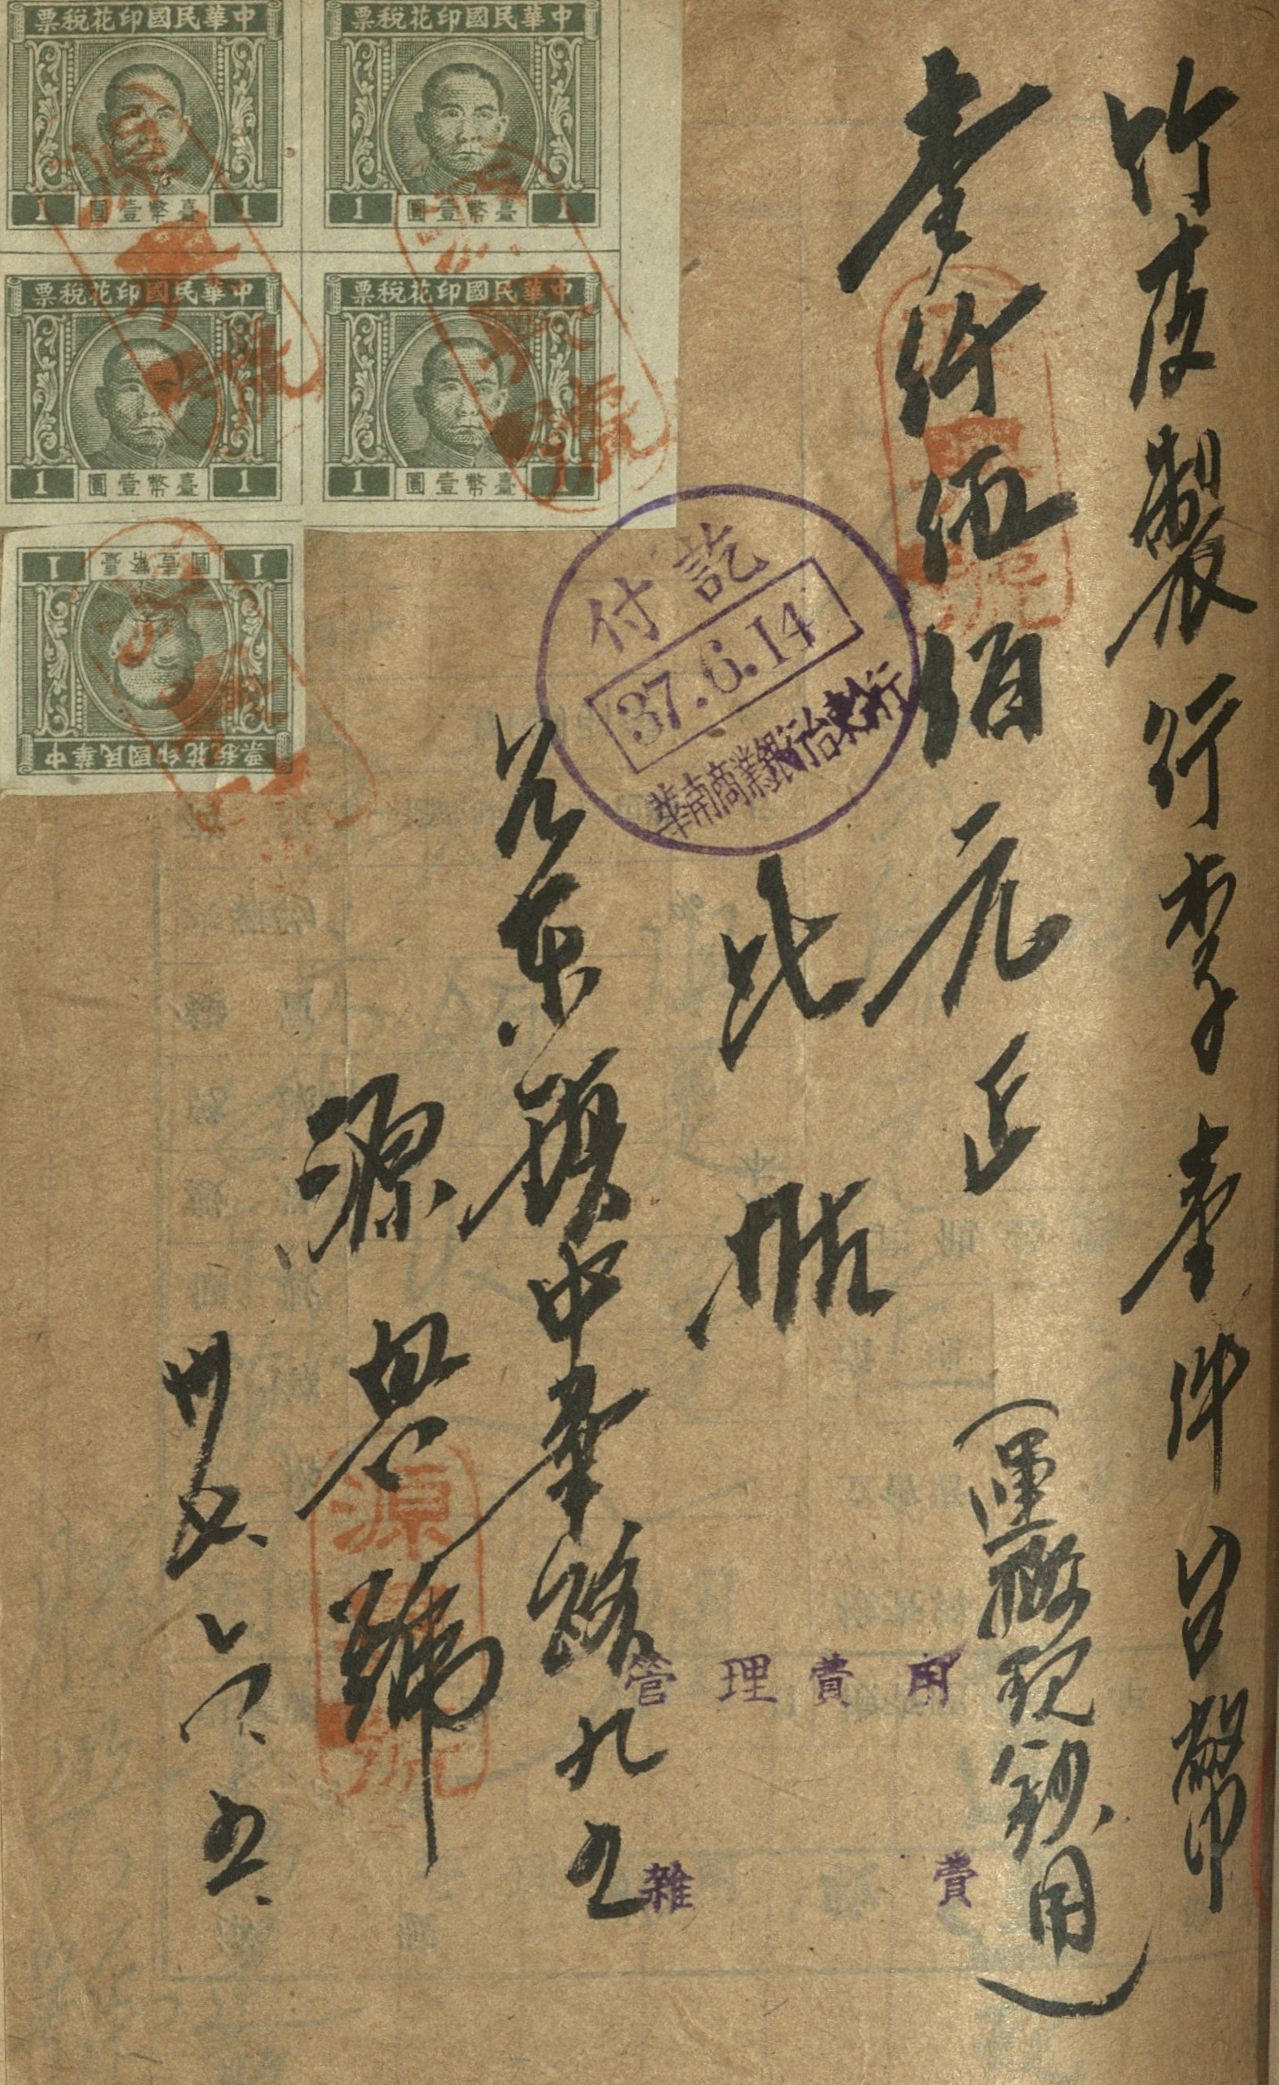 竹皮製行李壹件台幣
壹仟伍佰元正
(運搬現鈔用)
比帖
台東鎮中華路九五
源興號
卅七、六、五、
付訖
37.6.14
華南商業銀行台東分行
管理費用
雜費
源興號
中華民國印花稅票
1 臺幣壹圓 1
中華民國印花稅票
1 臺幣壹圓 1
中華民國印花稅票
1 臺幣壹圓 1
中華民國印花稅票
1 臺幣壹圓 1
中華民國印花稅票
1 臺幣壹圓 1